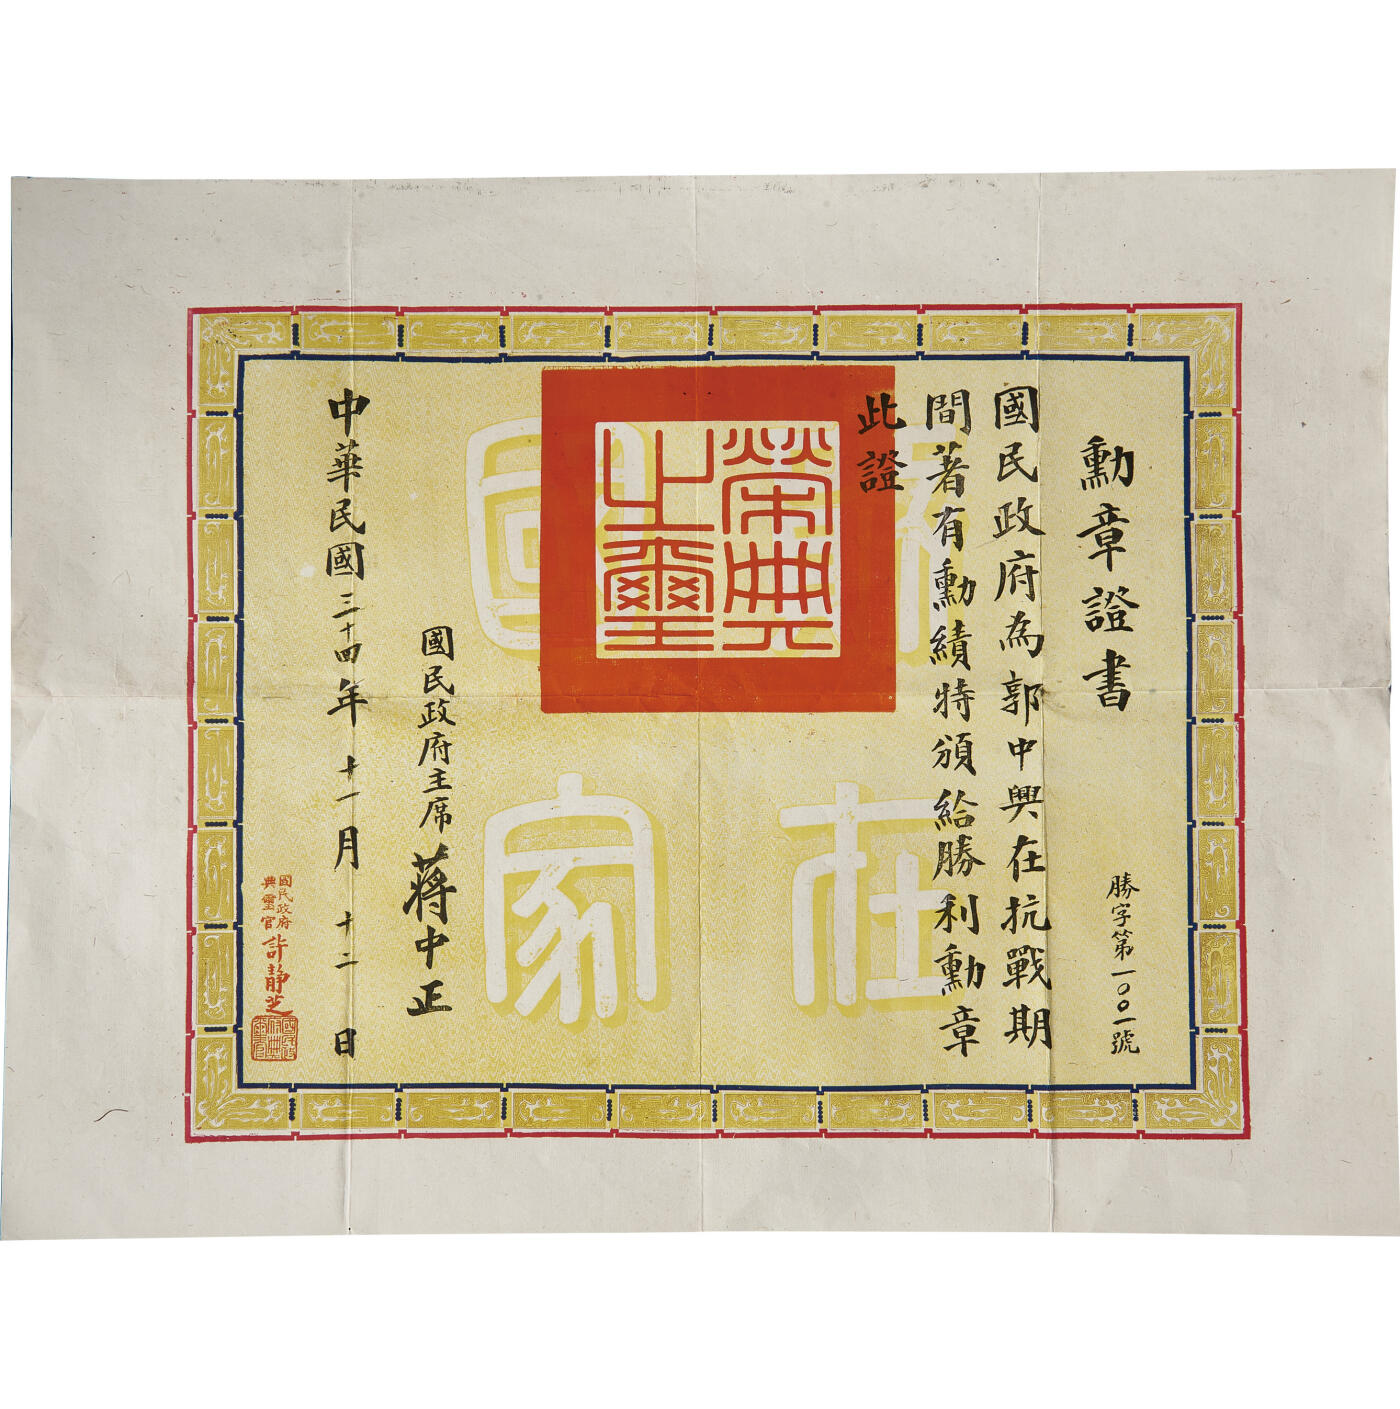 勳章證書
勝字第一〇〇一號
國民政府為郭中興在抗戰期
間著有勳績特頒給勝利勳章
此證
榮典
之璽
國民政府主席蔣中正
中華民國三十四年十一月十二日
國民政府
典璽官許靜芝
國在
國家